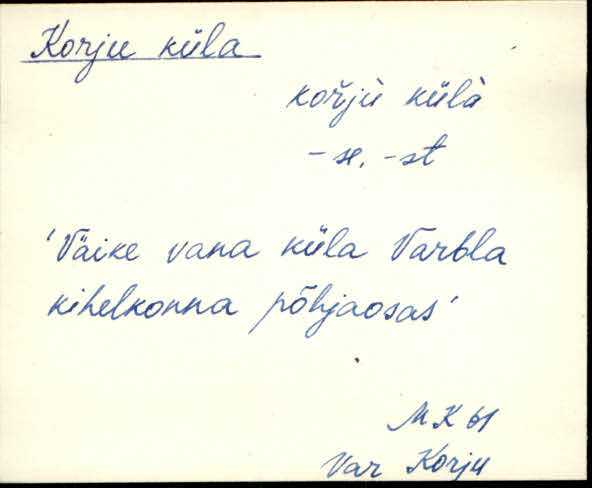 Korju küla
kor̆jù külà
-se, -st
'Väike vana küla Varbla
kihelkonna põhjaosas'
MK 61
Var Korju